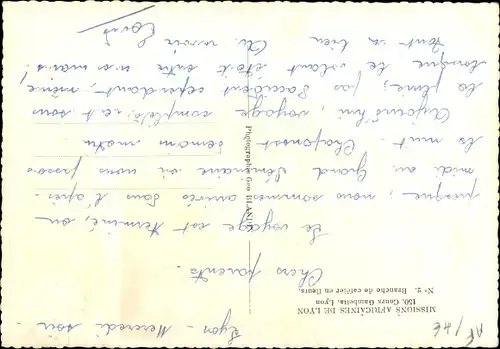 MISSIONS AFRICAINES DE LYON
150, Cours Gambetta, Lyon
N° 2. Branche de caféier en fleurs.
Lyon - Mercredi soir -
Chers parents.
Le voyage est terminé, ou
presque, nous sommes arrivés dans l'après-
midi au Grand Séminaire où nous passons
la nuit. Chaponost demain matin
Aujourd'hui, voyage sous
la pluie; pas d'accident cependant, même
lorsque le volant était entre nos mains!
Tout va bien Au revoir
Louis
Photographie Geo